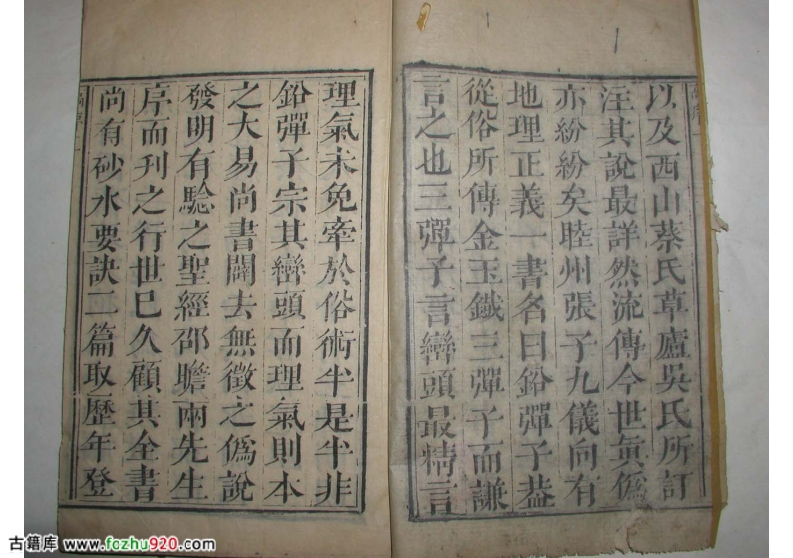 以及西山蔡氏草廬吳氏所訂
注其說最詳然流傳今世眞僞
亦紛紛矣睦州張子九儀向有
地理正義一書名曰鉛彈子葢
從俗所傳金玉鐵三彈子而謙
言之也三彈子言巒頭最精言
理氣未免牽於俗術半是半非
鉛彈子宗其巒頭而理氣則本
之大易尚書闢去無徵之僞說
發明有驗之聖經邵瞻兩先生
序而刋之行世已久顧其全書
尚有砂水要訣二篇取歷年登
古籍库 www.fozhu920.com